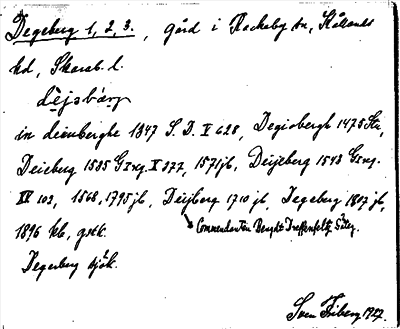 Degeberg 1, 2, 3. , gård i Rackeby sn, Kållands
hd, Skarab. l.
dèjsbárj
in deieuberghe 1347 S. D. V 628, Degioberghe 1475
Deieberg 1535 GIreg. X 377, 1571 jb, Deijeberg 1543 GIreg.
XV 103, 1568, 1795 jb, Deijberg 1710 jb, Degeberg 1807 jb,
1896 kb, gstk.
Commendanten Bengdt Säteg.
Degerberg sjök.
Sven Friberg 1927.